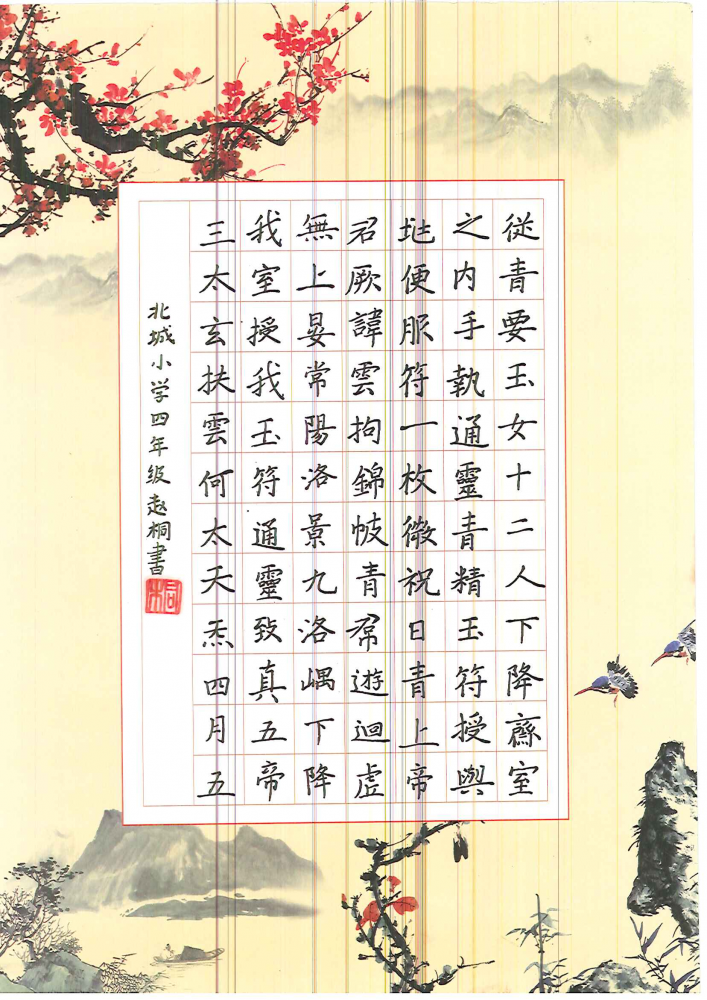 從青要玉女十二人下降齋室
之内手執通靈青精玉符授與
兆便服符一枚微祝曰青上帝
君厥諱雲拘錦帔青帬遊迴虚
無上晏常陽洛景九洛嵎下降
我室授我玉符通靈致真五帝
三太玄扶雲何太天炁四月五
北城小学四年级赵桐書